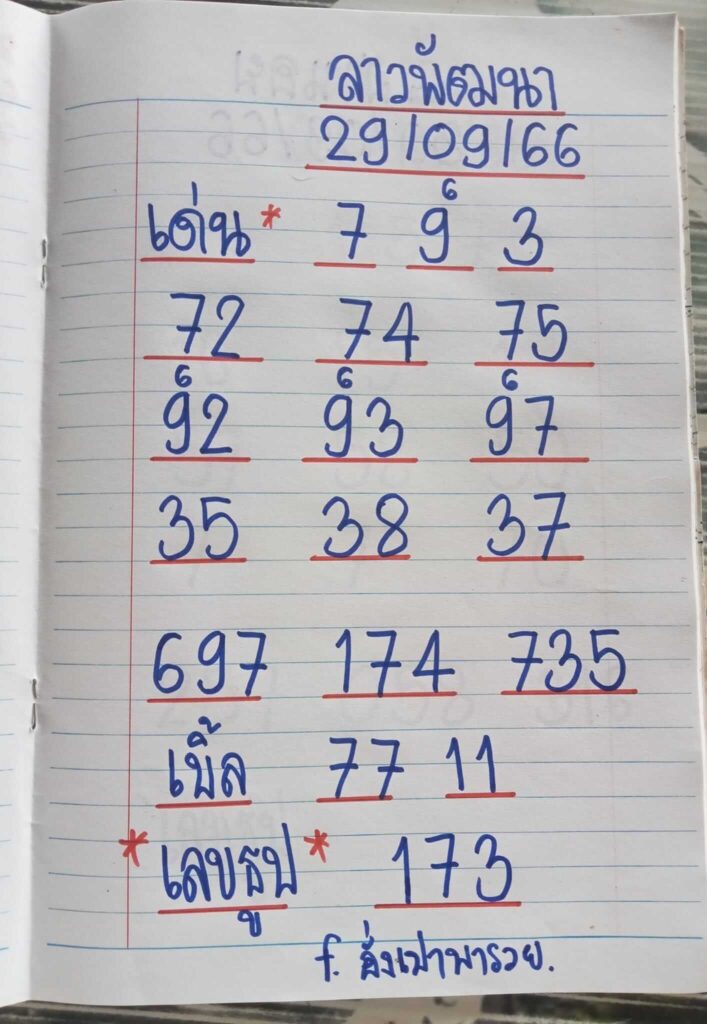 ลาวพัฒนา
29/09/66
เด่น * 7 9 6 3
72 74 75
6 6 6
92 93 97
35 38 37
697 174 735
เบิ้ล 77 11
* เลขธูป * 173
f. อั่งเปาพารวย.